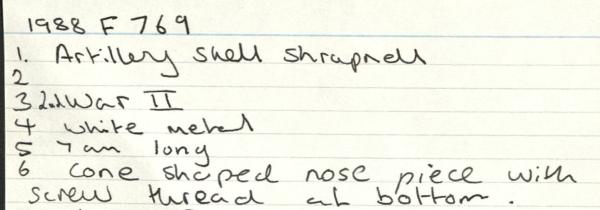 1988 F 769
1. Artillery shell shrapnell
2
3 2nd War II
4 white metal
5 7 cm long
6 cone shaped nose piece with
screw thread at bottom.